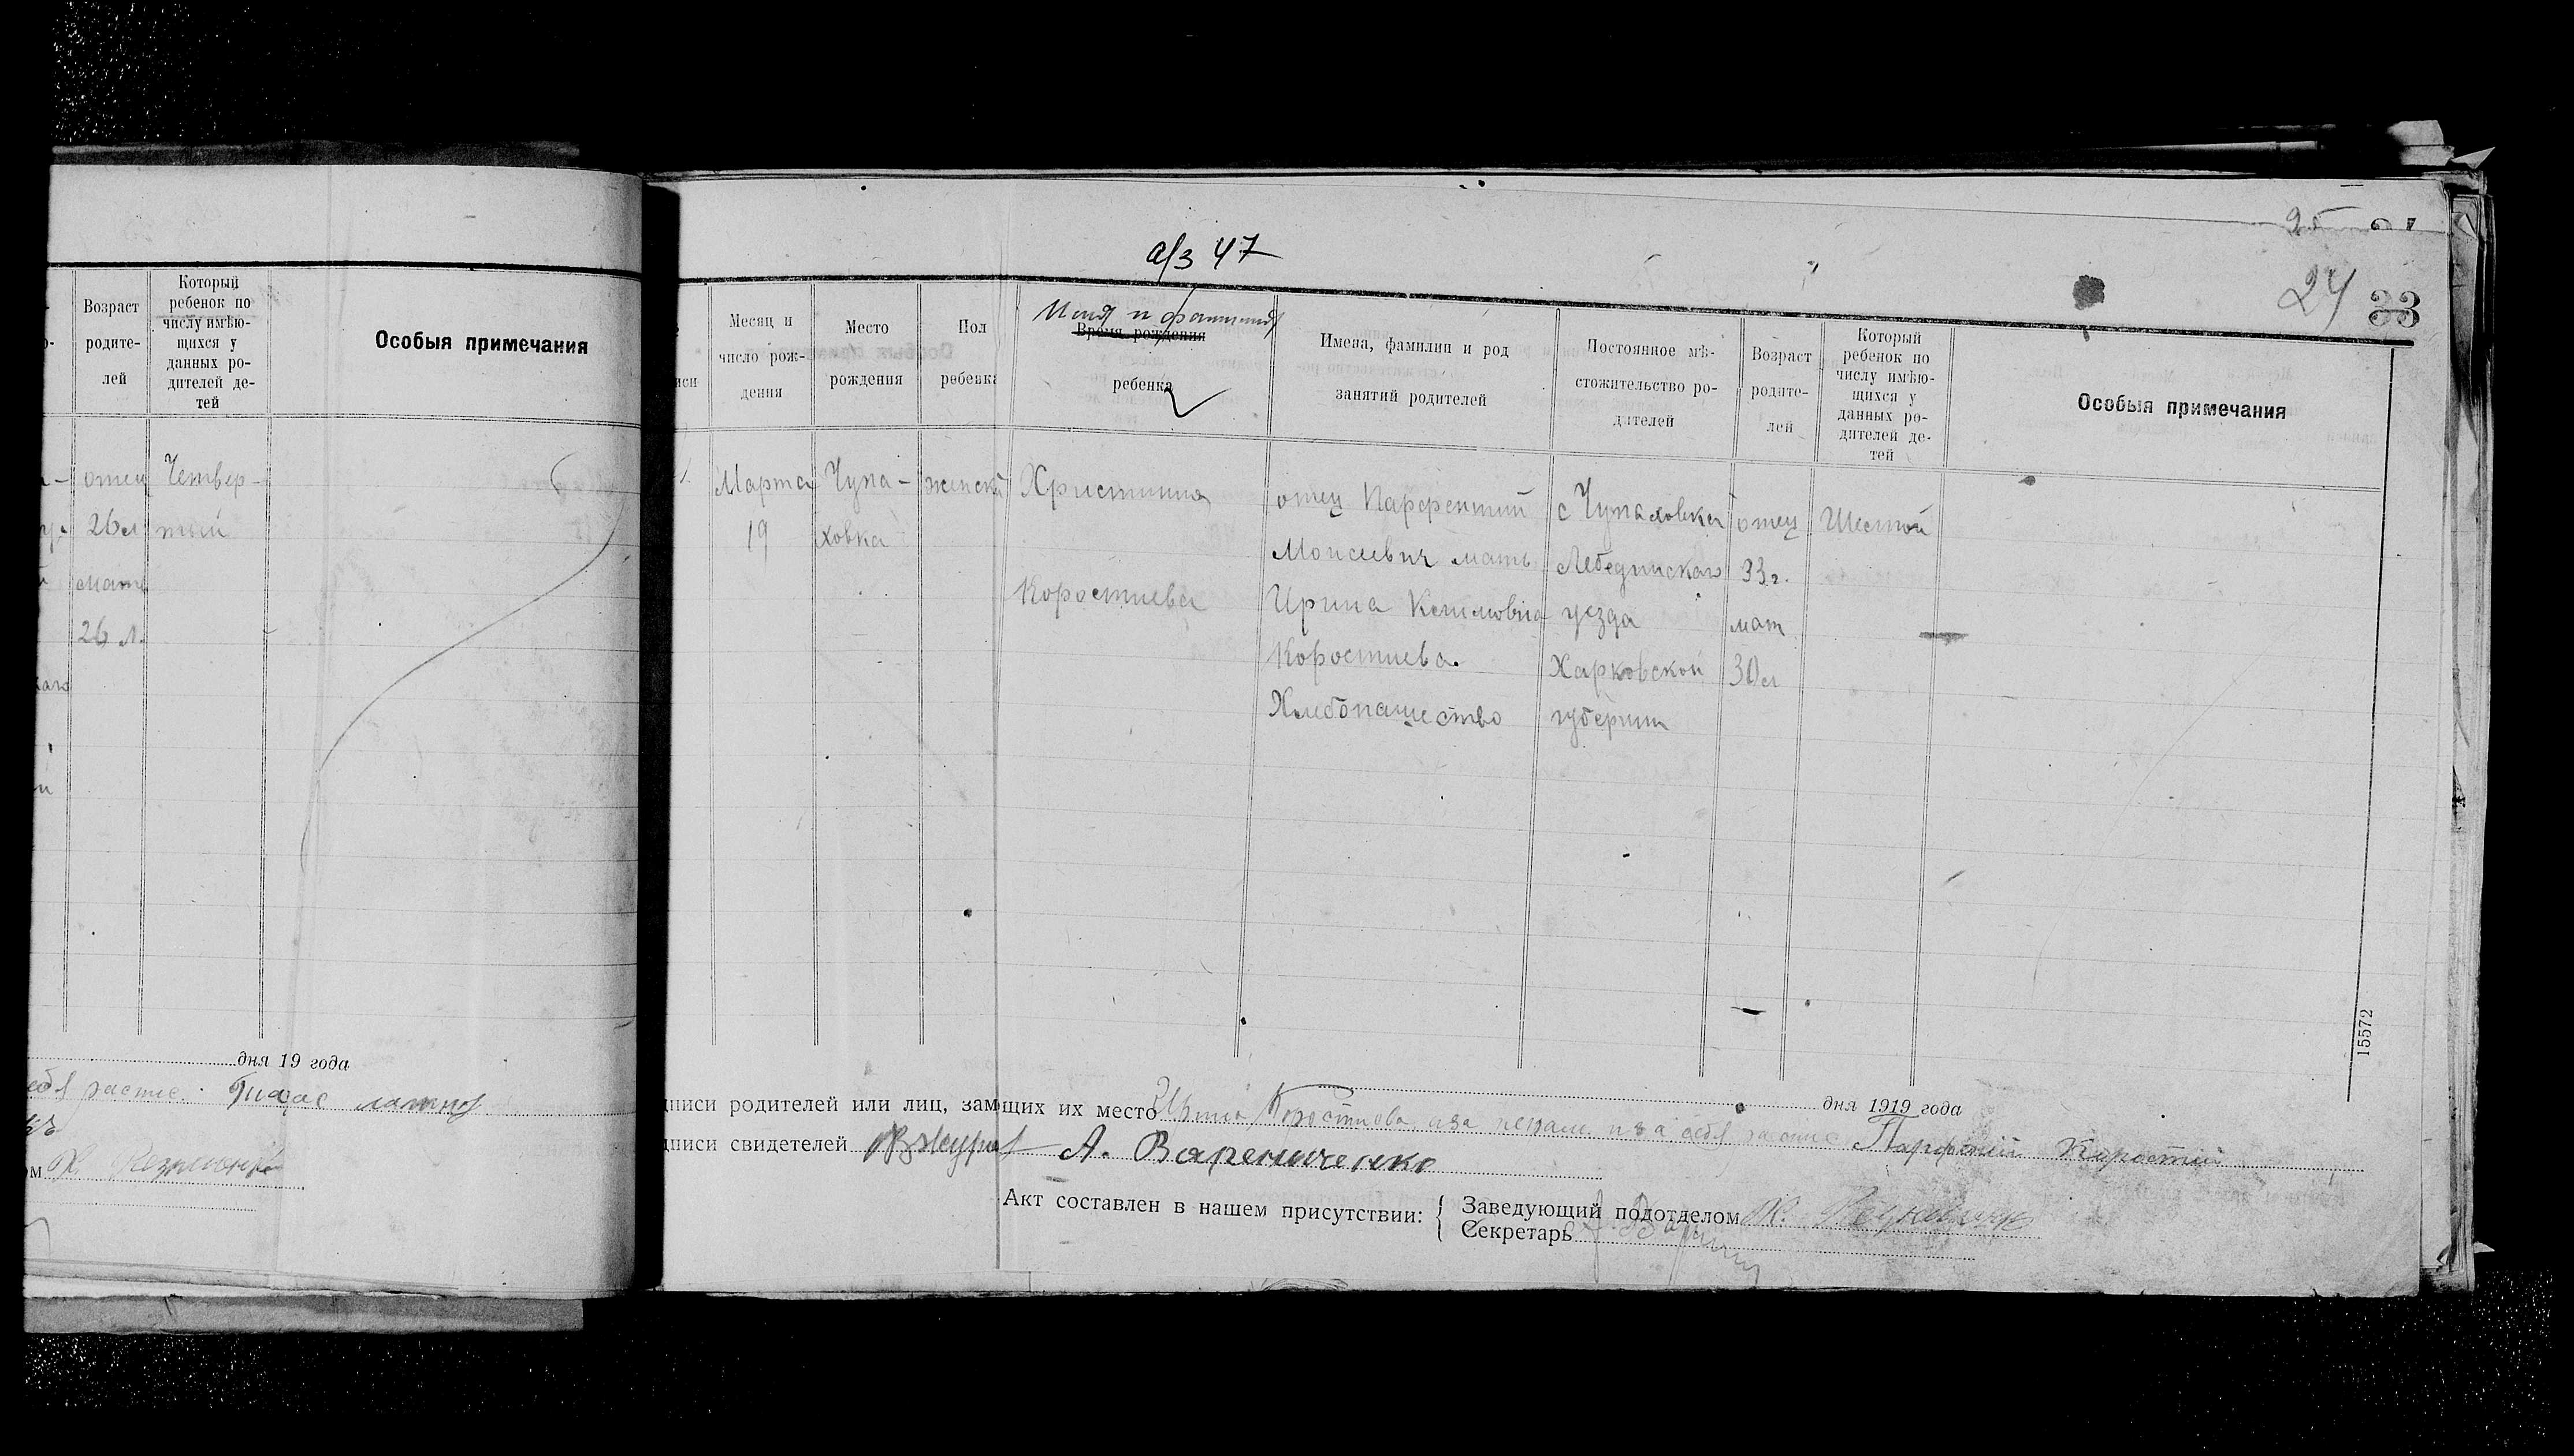 Возраст родите- лей
Который ребенок по числу имѣю- щихся у данных ро- дителей де- тей
Особыя примечания
отец
26 л
мать
26 л.
Четвер-
тый
дня 19 года
25
а/з 47
24
33
Месяц и число рож- дения
Место рождения
Пол ребенка
Имя и фамилия
Время рождения
ребенка
Имена, фамилии и род занятий родителей
Постоянное мѣ- стожительство ро- дителей
Возраст родите- лей
Который ребенок по числу имѣю- щихся у данных ро- дителей де- тей
Особыя примечания
Марта
19
Чупа-
ховка
женский
Христина
Коростиева
отец Парфентий
Моисеевич мать
Ирина Климовна
Коростиева.
Хлебопашество
с Чупаховка
Лебединскаго
уезда
Харковской
губернии
отец
33 г.
мат
30 л
Шестой
15572
дня 1919 года
писи родителей или лиц, зам щих их место Ирина Коростиева, а за неграм и за себя распис Парфентий Коростий
писи свидетелей А. Варениченко
Акт составлен в нашем присутствии:
Заведующий подотделом
Секретарь